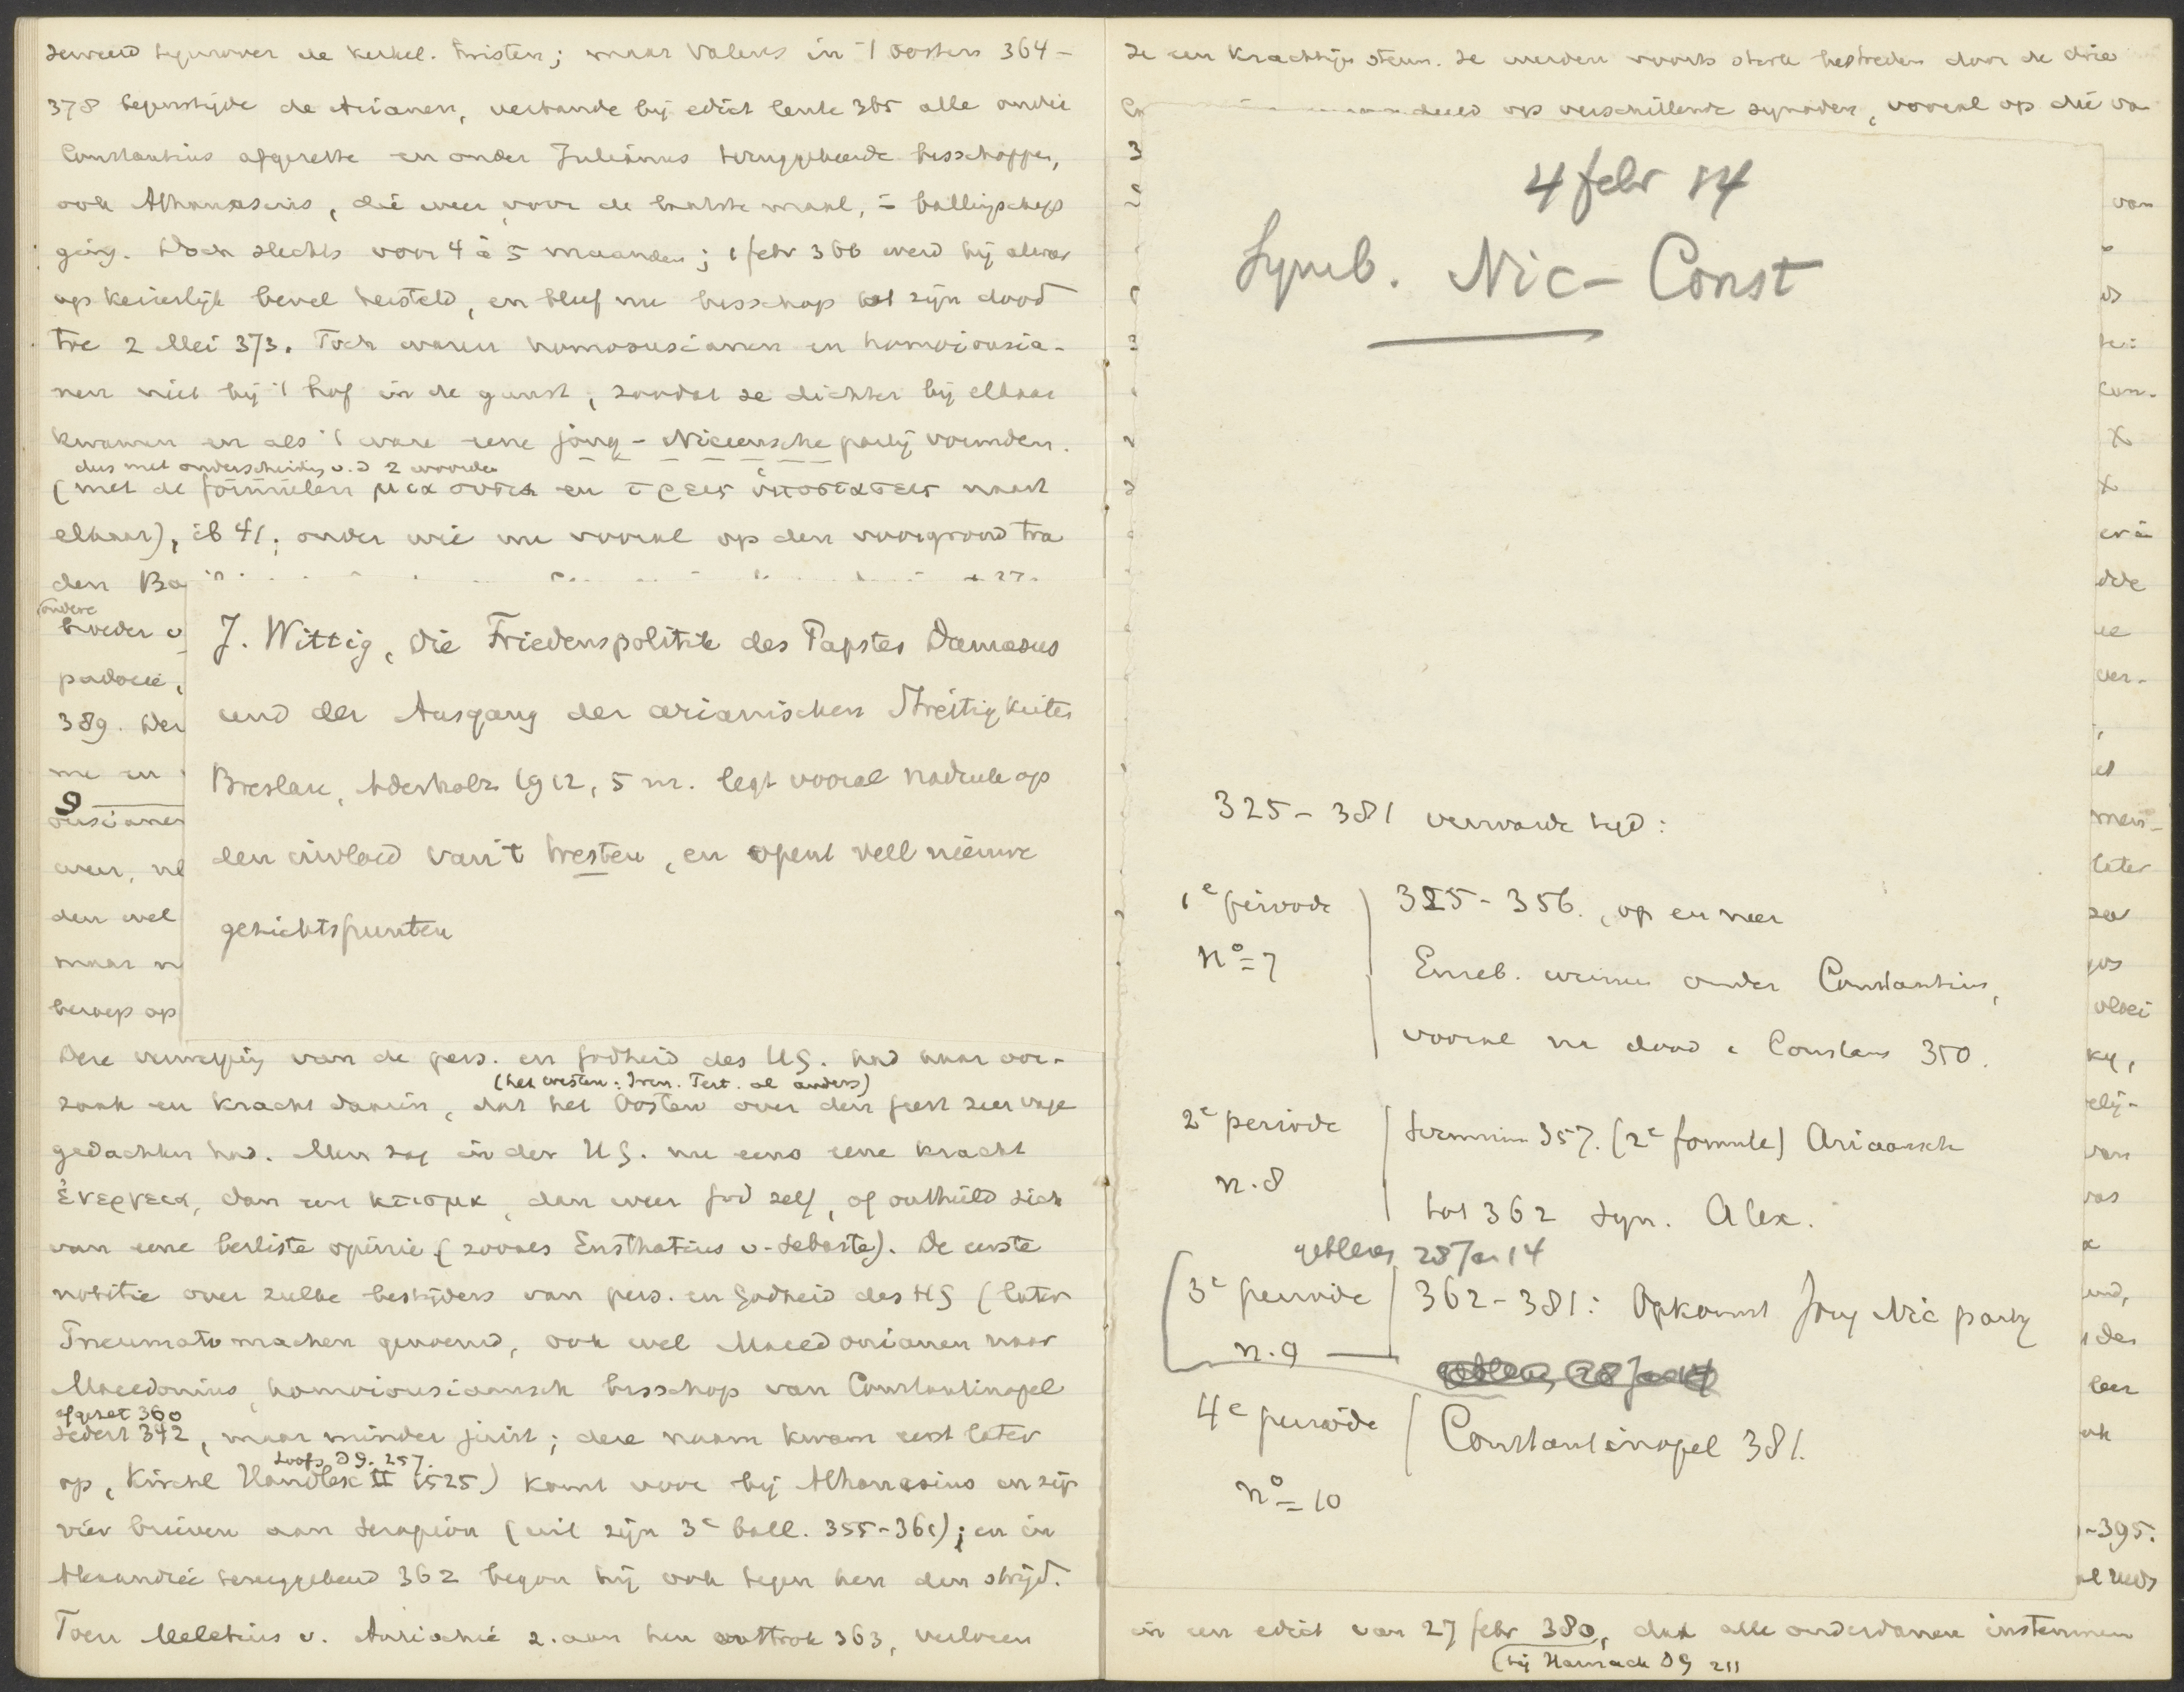 zweed tegenover de kerkel. twisten; maar Valens in 't oosten 364-
378 begunstigde de Arianen, verbande bij edict lente 365 alle onder
Constantius afgezette en onder Julianus teruggekeerde bisschoppen,
ook Athanasius, die weer, voor de laatste maal, in ballingschap
ging. Doch slechts voor 4 à 5 maanden; 1 febr 366 werd hij alweer
op keizerlijk bevel hersteld, en bleef nu bisschop tot zijn dood
toe 2 Mei 373. Toch waren homoousianen en homoiousia-
nen niet bij 't hof in de gunst, zoodat ze dichter bij elkaar
kwamen en als 't ware eene jong-Niceensche partij vormden.
dus met onderscheiding v. d 2 woorden
(met de formulen μια ουσια en τρεις υποστασεις naast
elkaar), ib 41; onder wie nu vooral op den voorgrond tra
den Ba
(andere
broeder v
padocie,
389. Der
me en
9
ousianen
weer, ne
den wel
maar n
beroep op
J. Wittig, Die Friedenspolitik des Papstes Damasus
und der Ausgang der arianischen Streitigkeiten
Breslau, Aderholz 1912, 5 m. legt vooral nadruk op
den invloed van 't Westen, en opent veel nieuwe
gezichtspunten
Deze verwerping van de pers. en godheid des H.G. had haar oor-
(het westen: Iren. Tert. al anders)
zaak en kracht daarin, dat het Oosten over den geest zeer vage
gedachten had. Men zag in den H.G. nu eens eene kracht
ἐνεργεια, dan een κτισμα, dan weer God zelf, of onthield zich
van eene besliste opinie (zooals Eusthatius v. Sebaste). De eerste
notitie over zulke bestrijders van pers. en Godheid des HG (later
Pneumatomachen genoemd, ook wel Macedonianen naar
Macedonius, homoiousiaansch bisschop van Constantinopel
afgezet 360
sedert 342, maar minder juist; deze naam kwam eerst later
Loofs DG. 257.
op, Kirchl Handlex II 1525) komt voor bij Athanasius in zijn
vier brieven aan Serapion (uit zijn 3e ball. 355-361); en in
Alexandrië teruggekeerd 362 begon hij ook tegen hen den strijd.
Toen Meletius v. Antiochië z. aan hen onttrok 363, verloren
ze een krachtige steun. Ze werden voorts sterk bestreden door de drie
deeld op verschillende synoden, vooral op die va
4 febr 14
Symb. Nic-Const
325-381 verwarde tijd:
1e periode
no=7
325-356., op en neer
Euseb. winnen onder Constantius,
vooral na dood v Constans 350.
2e periode
n.8
Sirmium 357. (2e formule) Ariaansch
tot 362 Syn. Alex.
gebleven 28 Jan 14
3e periode
n.9
362-381: Opkomst Jong Nic partij
4e periode
no=10
Constantinopel 381.
van
con-
X
X
ver-
later
ky,
van
leer
-395.
in een edict van 27 febr 380, dat alle onderdanen instemmen
(bij Harnack DG 211